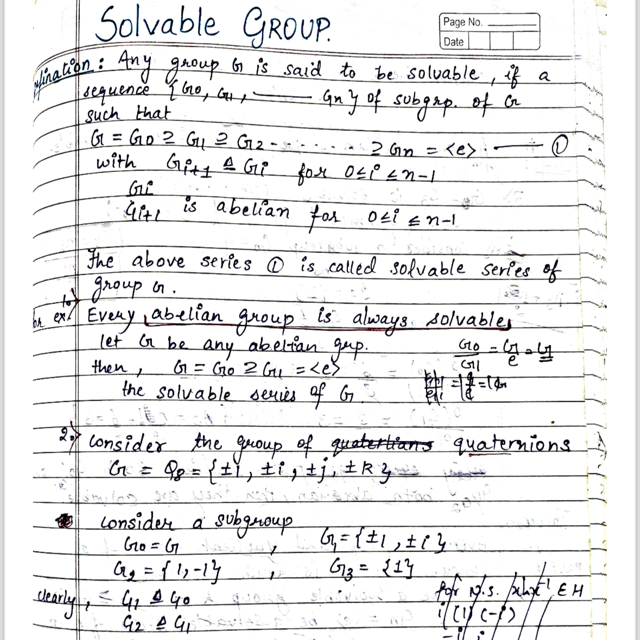 Solvable GROUP.
Page No.
Date
efination : Any group G is said to be solvable, if a
sequence {G0, G1, —— Gn} of subgrp. of G
such that
G = G0 ≥ G1 ≥ G2 - . . . . . . ≥ Gn = <e> . —— ①
with Gi+1 ⊴ Gi for 0≤i≤n-1
Gi
Gi+1 is abelian for 0≤i≤n-1
The above series ① is called solvable series of
group G.
for ex:
1.) Every abelian group is always solvable,
let G be any abelian grp.
G0/G1 = G/e = G
then, G = G0 ≥ G1 = <e>
the solvable series of G
2.) Consider the group of quaternions
G = Q8 = {±1, ±i, ±j, ±k}
consider a subgroup
G0 = G , G1 = {±1, ±i}
G2 = {1, -1} , G3 = {1}
clearly, G1 ⊴ G0
for N.S. xhx⁻¹ ∈ H
G2 ⊴ G1
i (1) (-i)